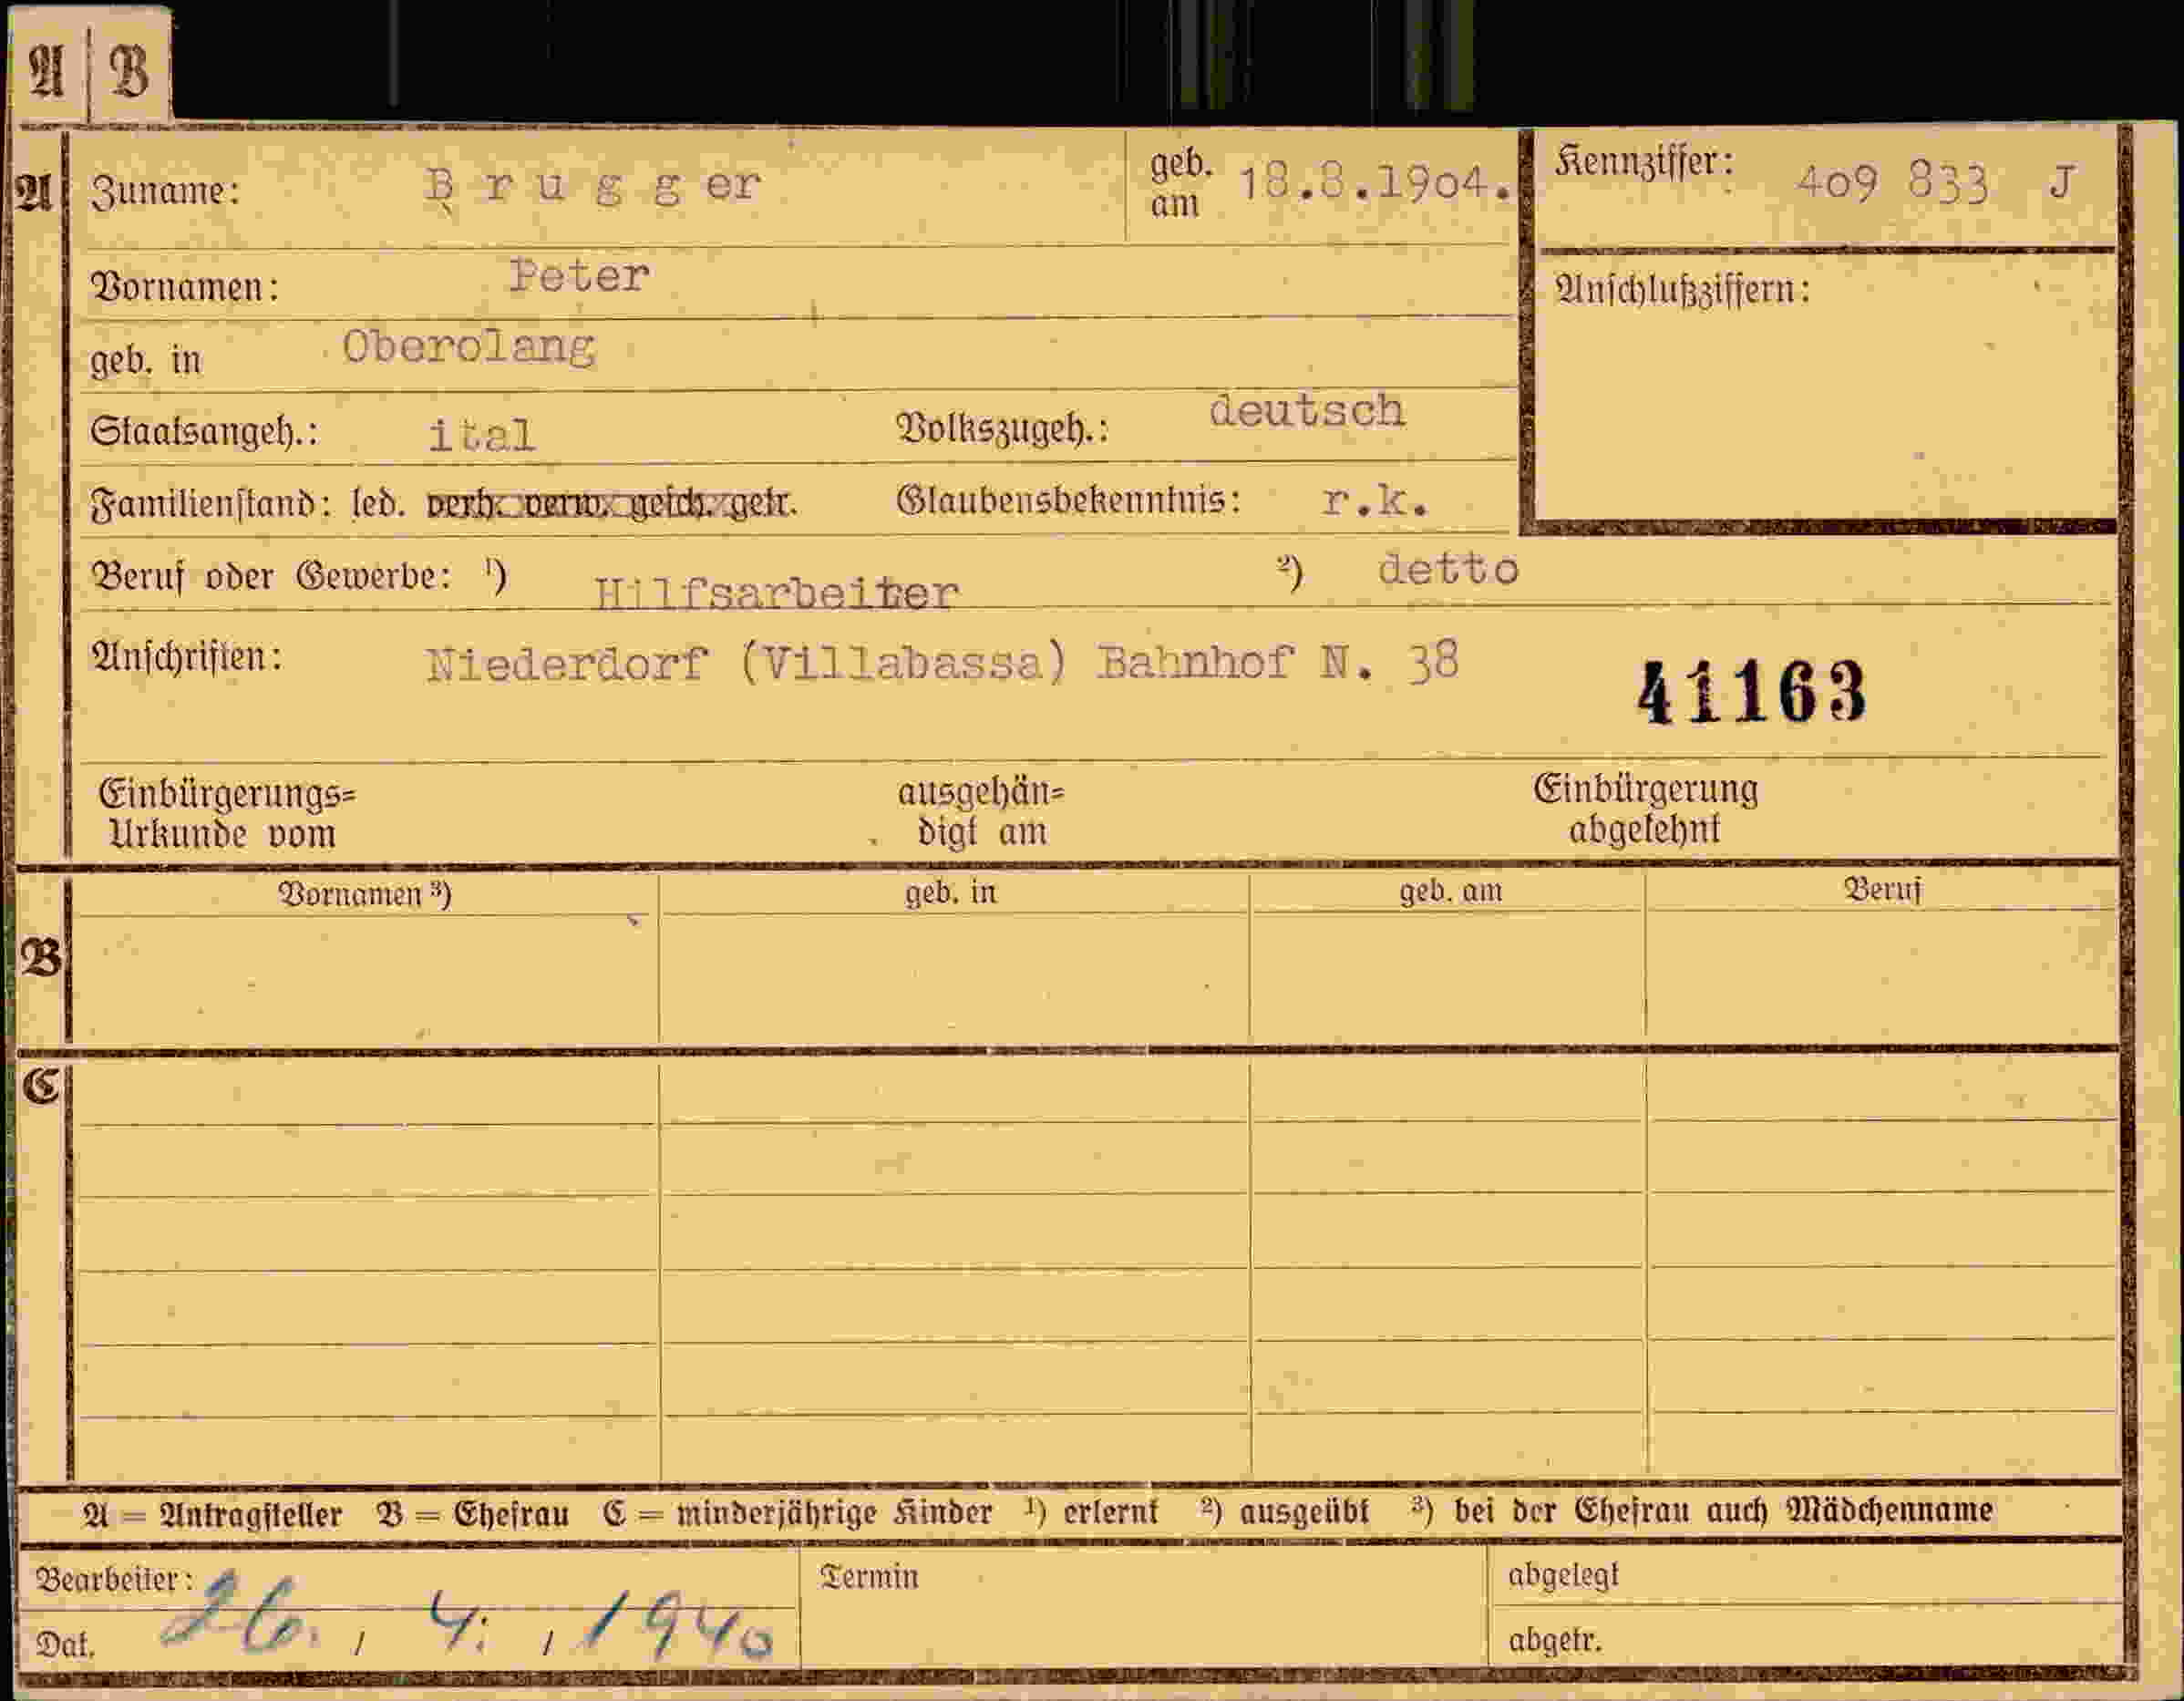 A B
A Zuname: Brugger geb. am 18.8.1904. Kennziffer: 409 833 J
Vornamen: Peter Anschlußziffern:
geb. in Oberolang
Staatsangeh.: ital Volkszugeh.: deutsch
Familienstand: led. verh. verw. gesch. getr. Glaubensbekenntnis: r.k.
Beruf oder Gewerbe: ¹) Hilfsarbeiter ²) detto
Anschriften: Niederdorf (Villabassa) Bahnhof N. 38
41163
Einbürgerungs= ausgehän= Einbürgerung
Urkunde vom digt am abgelehnt
Vornamen ³) geb. in geb. am Beruf
B
C
A = Antragsteller B = Ehefrau C = minderjährige Kinder ¹) erlernt ²) ausgeübt ³) bei der Ehefrau auch Mädchenname
Bearbeiter: Termin abgelegt
Dat. 26. / 4. / 1940 abgetr.